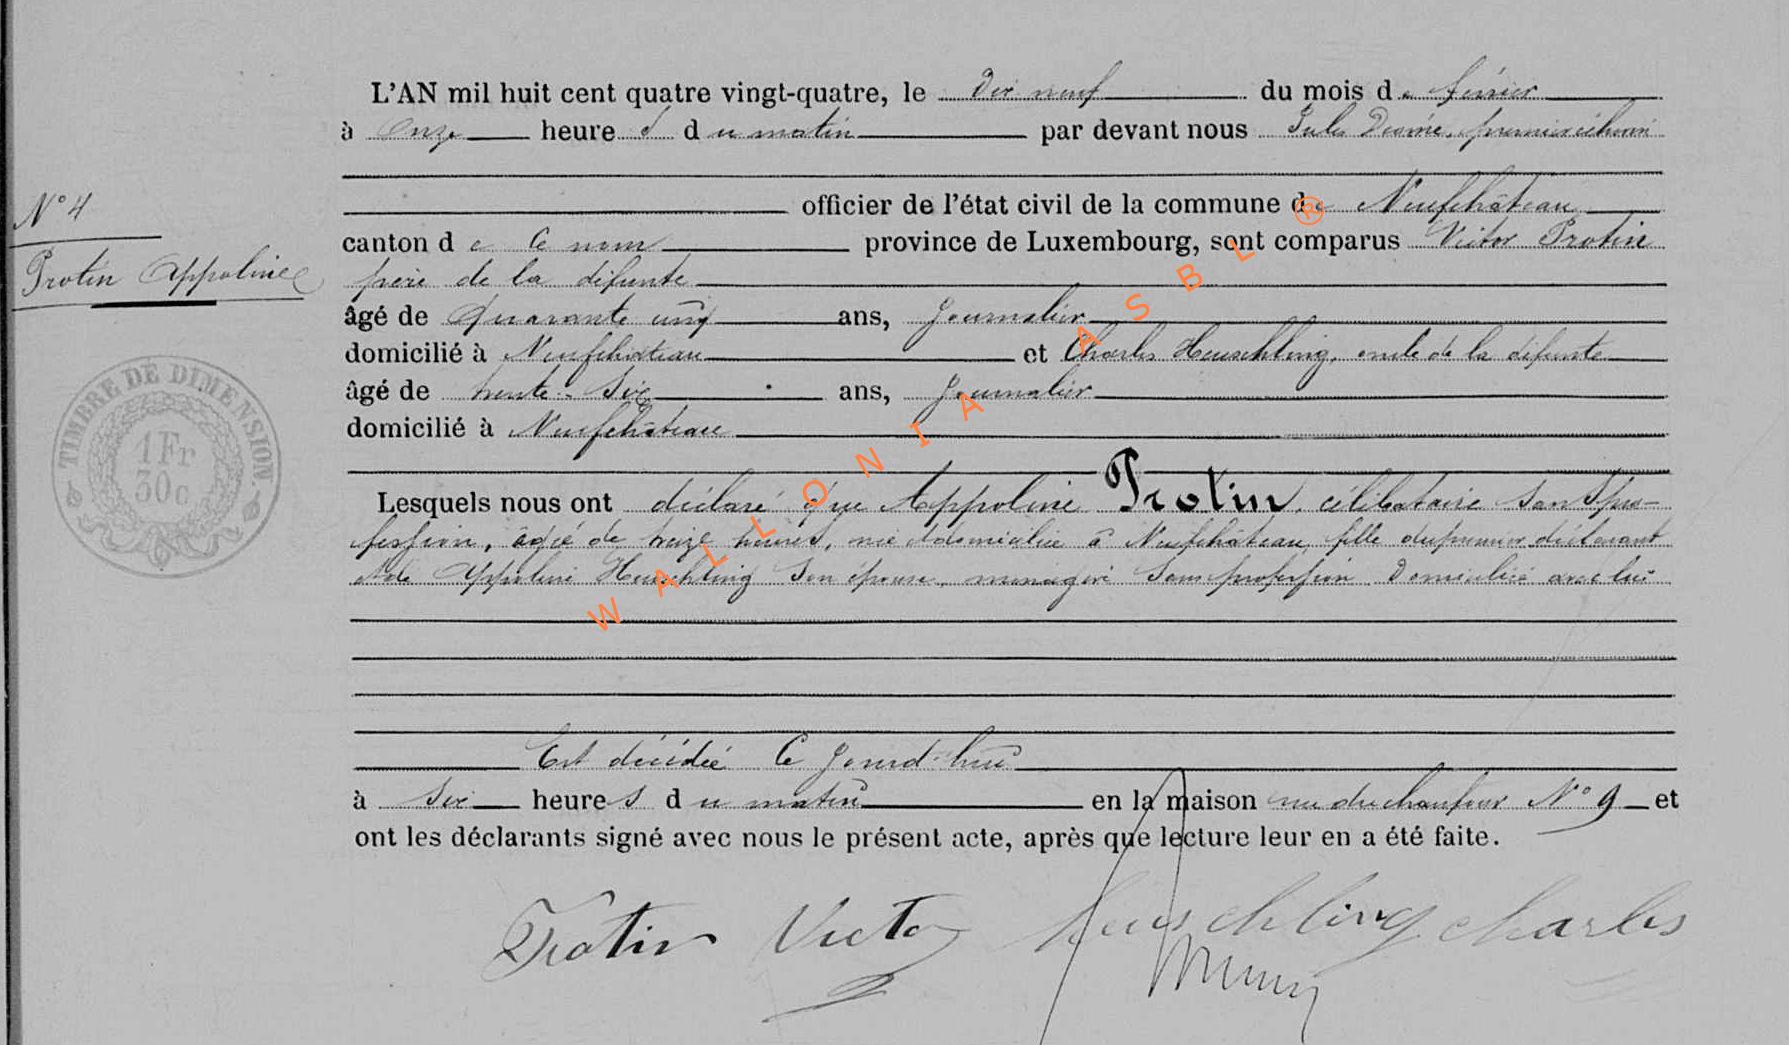 L'AN mil huit cent quatre vingt-quatre, le Dix neuf du mois de février
à Onze heures du matin par devant nous Jules premier échevin
officier de l'état civil de la commune de Neufchâteau
N° 4
canton de Ce nom province de Luxembourg, sont comparus Victor Protin
Protin Appoline
père de la défunte
âgé de Quarante cinq ans, Journalier
domicilié à Neufchâteau et Charles Heuschling, oncle de la défunte
âgé de trente-Six ans, Journalier
domicilié à Neufchâteau
TIMBRE DE DIMENSION
1 Fr
30c
Lesquels nous ont déclaré que Appoline Protin, célibataire sans pro-
fession, âgée de treize heures, née et domiciliée à Neufchâteau, fille du premier déclarant
et de Appoline Heuschling son épouse, ménagère sans profession Domiciliée avec lui
Est décédée Ce Jourd'hui
à Six heures du matin en la maison rue du chaufour N° 9 et
ont les déclarants signé avec nous le présent acte, après que lecture leur en a été faite.
Protin Victor Heuschling Charles
WALLONIA ASBL ®